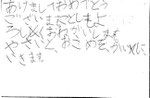 あけましておめでとう
ございますことしもよ
ろしくおねがいします
やさいと、おこめを、かいに
いきます。